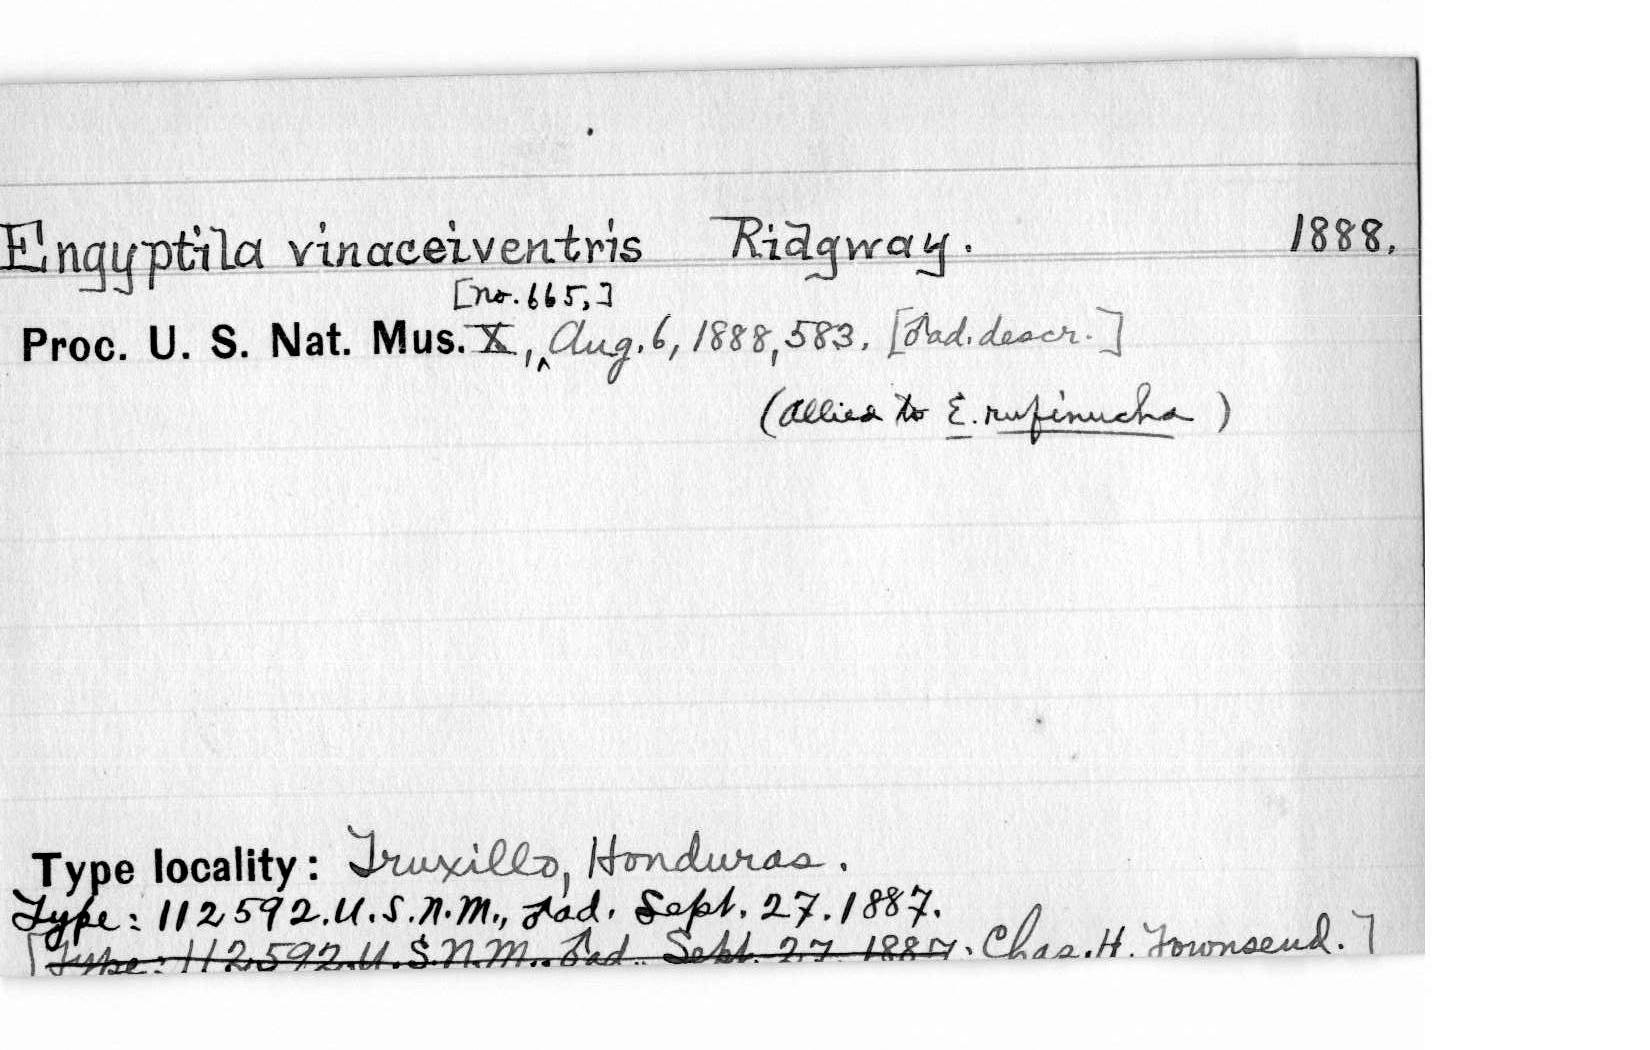 Engyptila vinaceiventris Ridgway. 1888.
[no. 665,]
Proc. U. S. Nat. Mus. X, ^ Aug. 6, 1888, 583. [♂ad. descr.]
(allied to E. rufinucha)
Type locality: Truxillo, Honduras.
Type: 112592. U.S.N.M., ♂ad. Sept. 27. 1887.
[Type: 112592. U.S.N.M., ♂ad. Sept. 27. 1887. Chas. H. Townsend.]